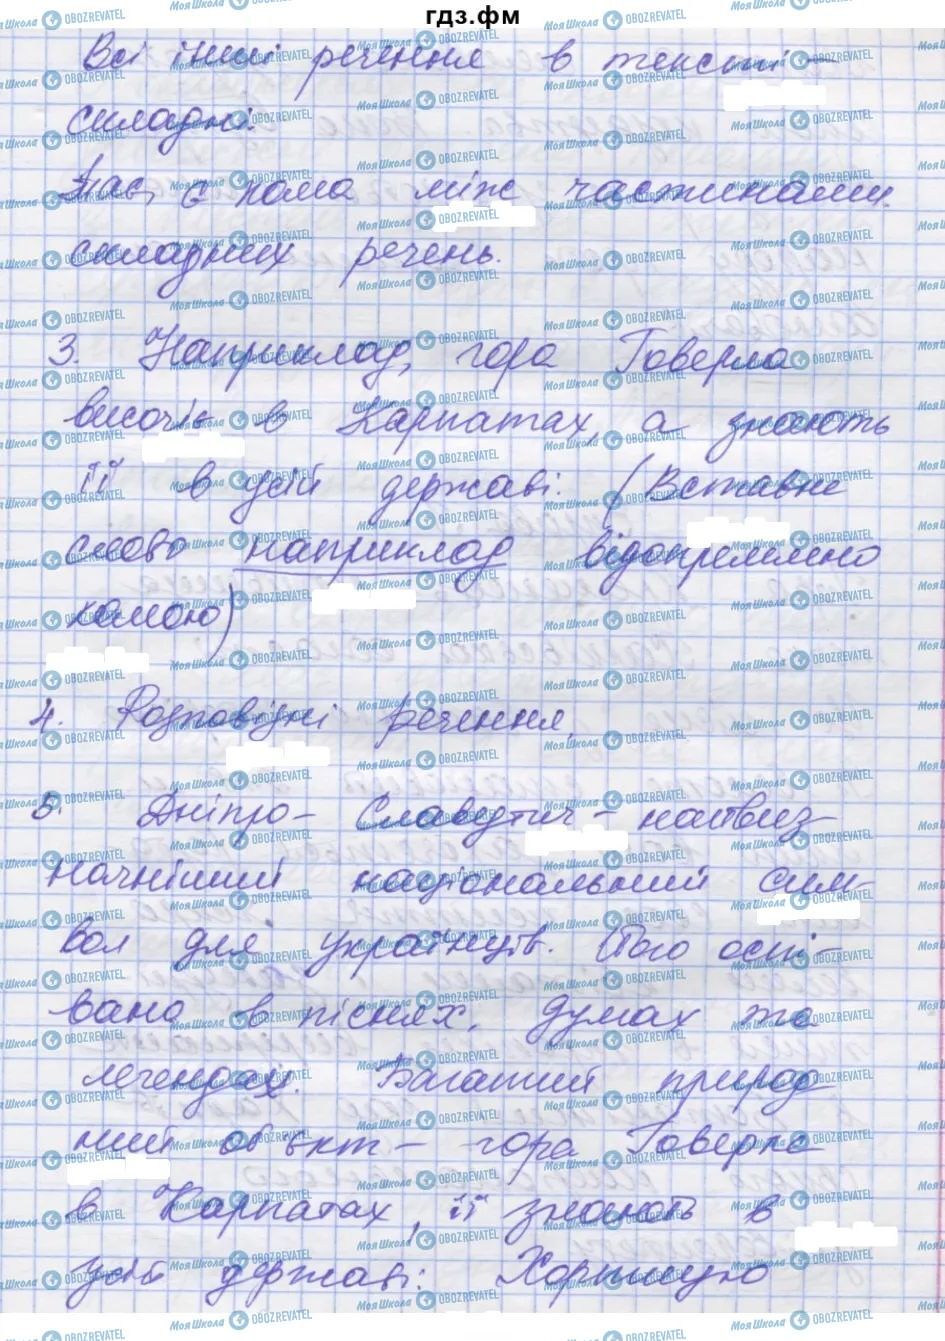 гдз.фм
Всі інші речення в тексті —
складні.
Так, є кома між частинами
складних речень.
3. Наприклад, гора Говерла
височіє в Карпатах, а знають
її в усій державі. (Вставне
слово наприклад відокремлено
комою)
4. Розповідні речення.
5. Дніпро – Славутич – найвиз-
начніший національний сим-
вол для українців. Його оспі-
вано в піснях, думах та
легендах. Багатий природ-
ний об'єкт – гора Говерла
в Карпатах, її знають в
усій державі. Хортицю